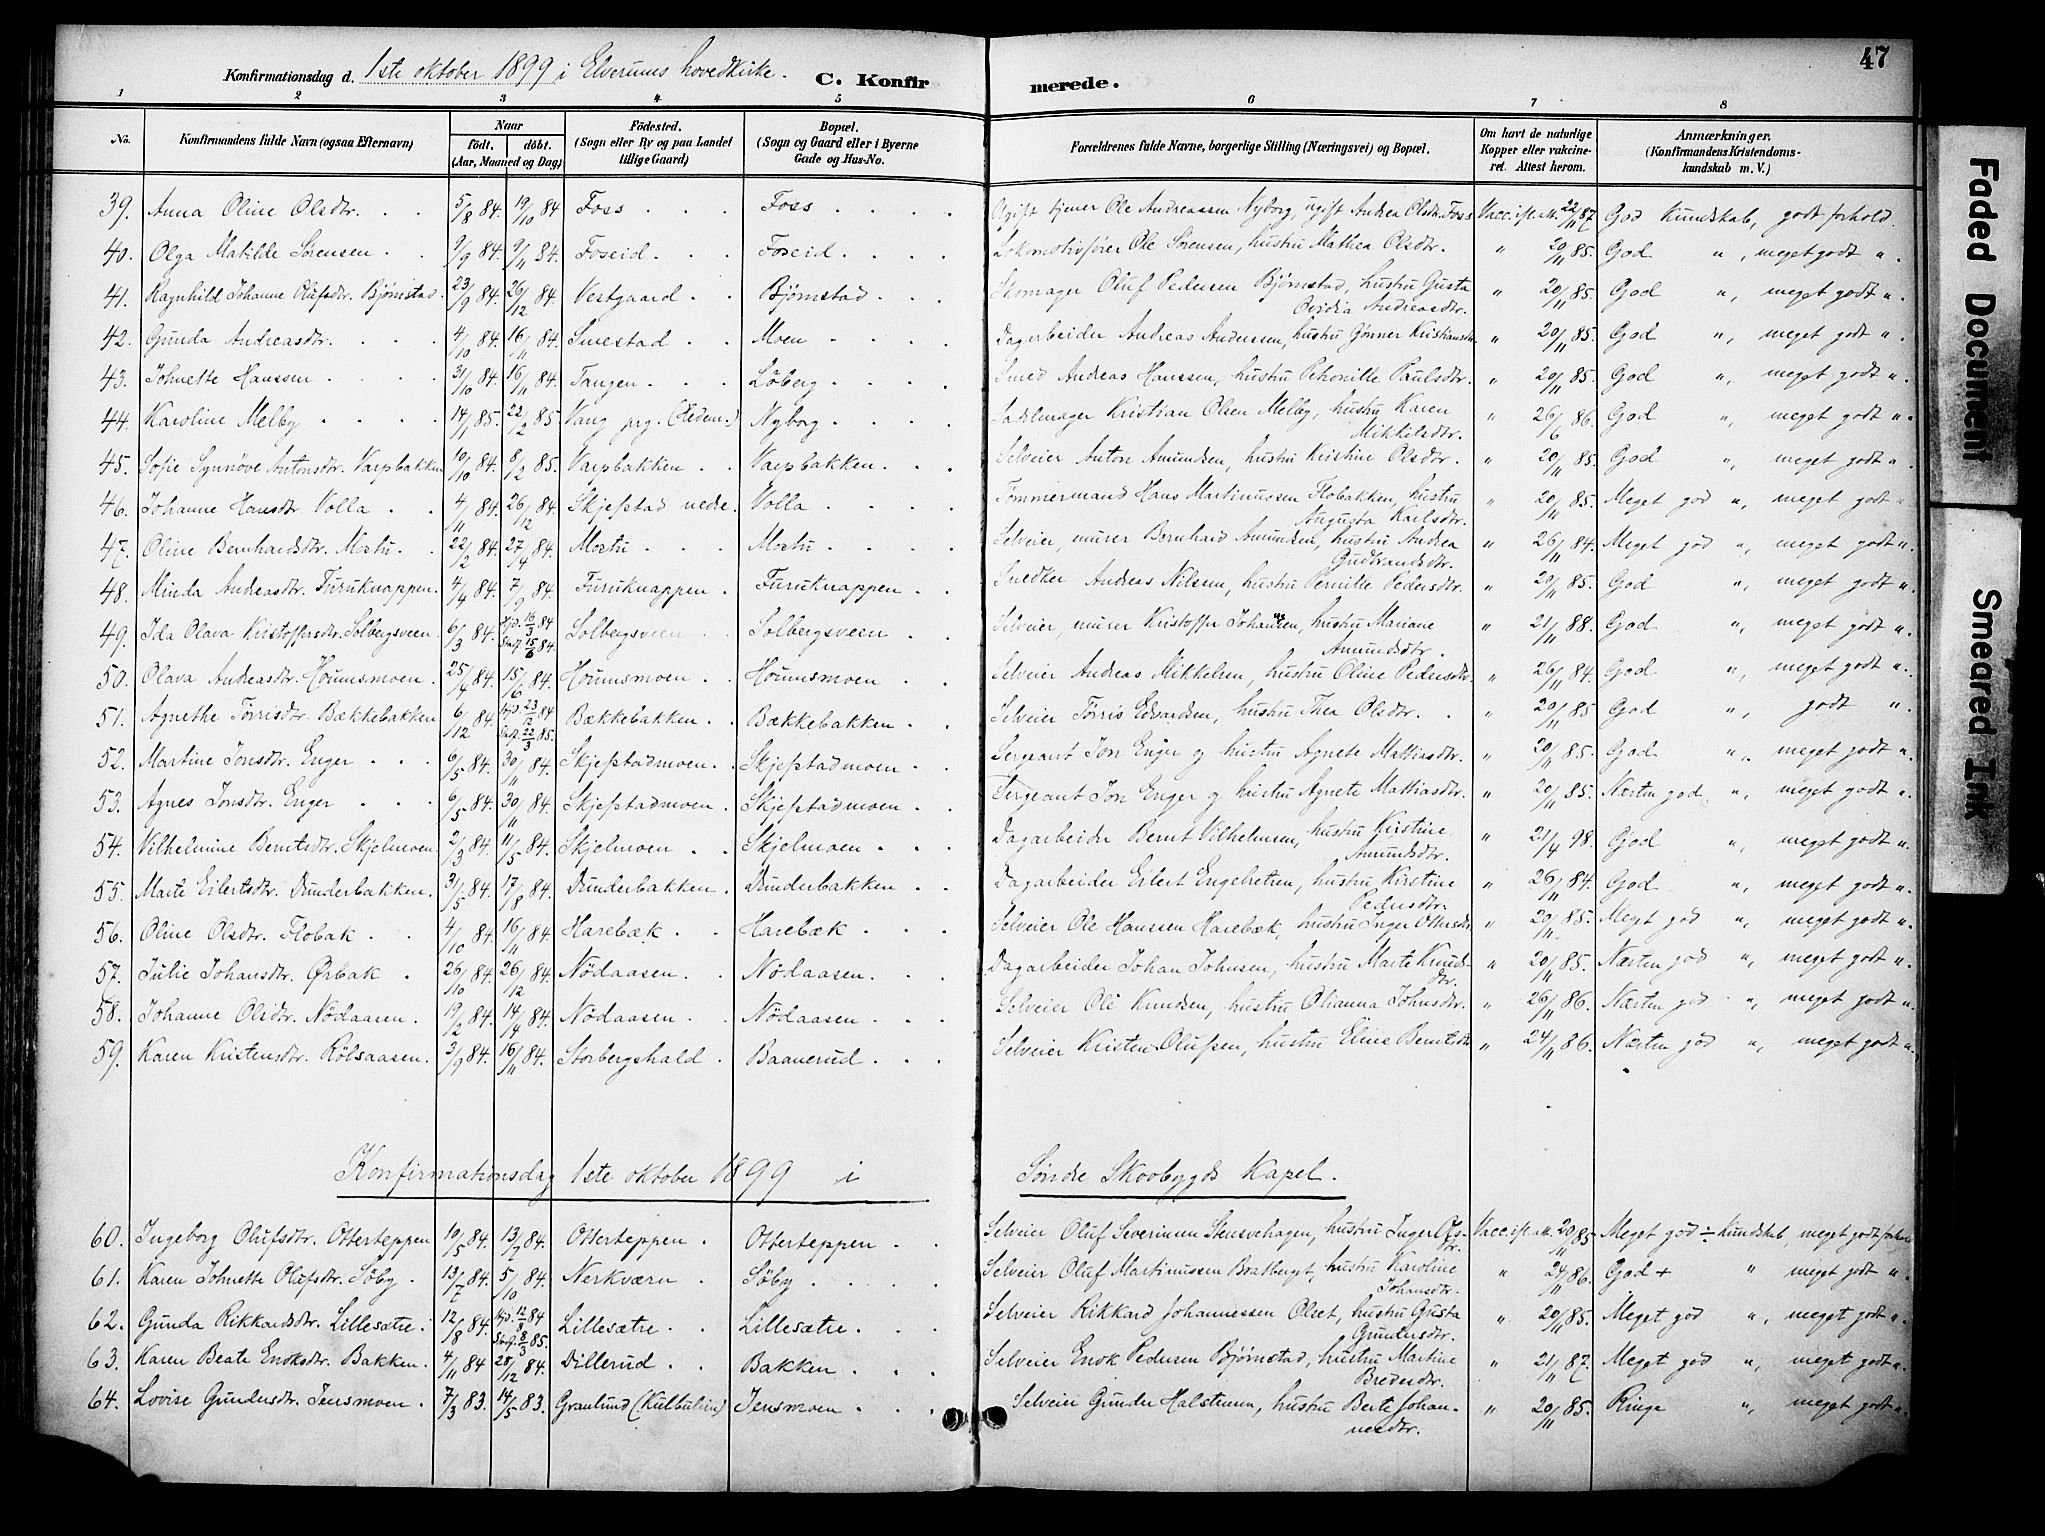 47
Konfirmationsdag d. 1ste oktober 1899 i Elverums hovedkirke. C. Konfirmerede.
1 2 3 4 5 6 7 8
No. Konfirmandens fulde Navn (ogsaa Efternavn) Naar födt. döbt. (Aar, Maaned og Dag) Födested. (Sogn eller By og paa Landet tillige Gaard) Bopæl. (Sogn og Gaard eller i Byerne Gade og Hus-No. Forældrenes fulde Navne, borgerlige Stilling (Næringsvei) og Bopæl. Om havt de naturlige Kopper eller vakcineret. Attest herom. Anmærkninger. (Konfirmandens Kristendomskundskab m. V.)
39. Anna Oline Olsdtr. 5/8 84. 19/10 84 Foss Foss Ugift tjener Ole Andreassen Nyborg, ugift Andrea Olsdtr. Foss Vacc. ifl. att. 22/11 87 God kundskab, godt forhold.
40. Olga Matilde Sörensen 9/9 84. 9/11 84. Foseid Foseid Lokomotivförer Ole Sörensen, hustru Mathea Olsdtr. " 20/11 85. God ", meget godt ".
41. Ragnhild Johanne Olufsdtr. Björnstad 23/9 84. 26/12 84. Vestgaard Björnstad Skomager Oluf Pedersen Björnstad, hustru Gusta Ovidia Andreasdtr. " 20/11 85. God ", meget godt ".
42. Gunda Andreasdtr. 4/10 84. 16/11 84. Smestad Moen Dagarbeider Andreas Andersen, hustru Gönner Kristiansdtr. " 20/11 85. God ", meget godt ".
43. Johnette Hanssen 31/10 84. 16/11 84. Tangen Löberg Smed Andreas Hanssen, hustru Pehonille Paulsdtr. " 20/11 85. God ", meget godt ".
44. Karoline Melby 14/1 85. 22/2 85. Vang prg. (Hedem.) Nyborg Sadelmager Kristian Olsen Melby, hustru Karen Mikkelsdtr. " 26/6 86. God ", meget godt ".
45. Sofie Synnöve Antonsdtr. Varpbakken 10/10 84. 8/2 85. Varpbakken Varpbakken Selveier Anton Amundsen, hustru Kristine Olsdtr. " 20/11 85. God ", meget godt ".
46. Johanne Hansdtr. Volla 4/11 84. 26/12 84. Skjefstad nedre. Volla Tömmermand Hans Martinussen Flobakken, hustru Augusta Karlsdtr. " 20/11 85. Meget god ", meget godt "
47. Oline Bernhardsdtr. Mostu. 22/2 84. 27/4 84. Mostu Mostu Selveier, murer Bernhard Amundsen, hustru Andrea Gudbrandsdtr. " 26/11 84. Meget god ", meget godt ".
48. Minda Andreasdtr. Furuknappen. 4/4 84. 7/9 84. Furuknappen Furuknappen Snedker Andreas Nilsen, hustru Pernille Pedersdtr. " 20/11 85. God ", meget godt ".
49. Ida Olava Kristoffersdtr. Solbergsveen. 6/3 84. Hjd. 16/3 84 Stadf. 15/6 84. Solbergsveen Solbergsveen Selveier, murer Kristoffer Johannesen, hustru Mariane Amundsdtr. " 21/11 88. God ", meget godt "
50. Olava Andreasdtr. Hörnnsmoen. 25/4 84. 15/6 84. Hörnnsmoen. Hörnnsmoen Selveier Andreas Mikkelsen, hustru Oline Pedersdtr. " 26/11 84. God ", meget godt ".
51. Agnethe Törrisdtr. Bækkebakken 6/12 84. Hjd. 23/12 84 Stadf. 22/3 85. Bækkebakken Bækkebakken Selveier Törris Edvardsen, hustru Thea Olsdtr. " 20/11 85 God ", godt ".
52. Martine Jonsdtr. Enger 6/5 84. 30/11 84. Skjefstadmoen Skjefstadmoen Sergeant Jon Enger og hustru Agnete Mathiasdtr. " 20/11 85. God ". meget godt ".
53. Agnes Jonsdtr. Enger 6/5 84. 30/11 84. Skjefstadmoen Skjefstadmoen Sergeant Jon Enger og hustru Agnete Mathiasdtr. " 20/11 85. Næsten god ", meget godt ".
54. Vilhelmine Berntsdtr. Skjelmoen 2/3 84. 11/5 84. Skjelmoen Skjelmoen Dagarbeider Bernt Vilhelmsen, hustru Kirstine Amundsdtr. " 21/4 98. God ", meget godt ".
55. Marte Eilertsdtr. Dunderbakken. 31/5 84. 17/8 84. Dunderbakken Dunderbakken Dagarbeider Eilert Engebretsen, hustru Kirstine Pedersdtr. " 26/11 84. God ", meget godt ".
56. Oline Olsdtr. Flobak 4/10 84. 16/11 84. Harebæk Harebæk Selveier Ole Hanssen Harebæk, hustru Inger Ottersdtr. " 20/11 85. Meget god ", meget godt ".
57. Julie Johansdtr. Ørbak 26/10 84. 26/12 84. Nödaasen Nödaasen Dagarbeider Johan Johnsen, hustru Marte Knudsdtr. " 20/11 85. Næsten god ", meget godt ".
58. Johanne Olsdtr. Nödaasen. 19/2 84. 14/4 84. Nödaasen Nödaasen Selveier Ole Knudsen, hustru Olianna Johnsdtr. " 26/11 86. Næsten god ", meget godt ".
59. Karen Kristensdtr. Rölsaasen. 3/9 84. 16/11 84. Storbergshald Baanerud Selveier Kristen Olufsen, hustru Eline Berntsdtr. " 24/11 86. Næsten god ", meget godt ".
Konfirmationsdag 1ste oktober 1899 i Söndre Skovbygds Kapel.
60. Ingeborg Olufsdtr. Otterteppen 10/5 84. 13/7 84. Otterteppen Otterteppen Selveier Oluf Severinsen Stensvehagen, hustru Inger Olsdtr. Vacc. ifl. att. 20/11 85 Meget god ÷ kundskab, meget godt forhold
61. Karen Johnette Olufsdtr. Söby 13/7 84. 5/10 84. Nerkværn Söby Selveier Oluf Martinussen Bratberget, hustru Karoline Johansdtr. " 24/11 86. God + " meget godt ".
62. Gunda Rikkardsdtr. Lillesætre. 12/8 84. Hjd. 12/8 84 Stadf. 8/3 85. Lillesætre Lillesætre Selveier Rikkard Johannessen Olset, hustru Gusta Gundersdtr. " 20/11 85. Meget god ", meget godt "
63. Karen Beate Enoksdtr. Bakken. 4/11 84 28/12 84. Dillerud Bakken Selveier Enok Pedersen Björnstad, hustru Martine Bredesdtr. " 21/11 87. Meget god ", meget godt ".
64. Lovise Gundersdtr. Jensmoen 7/3 83. 14/5 83. Granlund (Kulbulien) Jensmoen Selveier Gunder Halstensen, hustru Berte Johannesdtr. " 20/11 85. Ringe ", meget godt ".
Faded Document
Smeared Ink